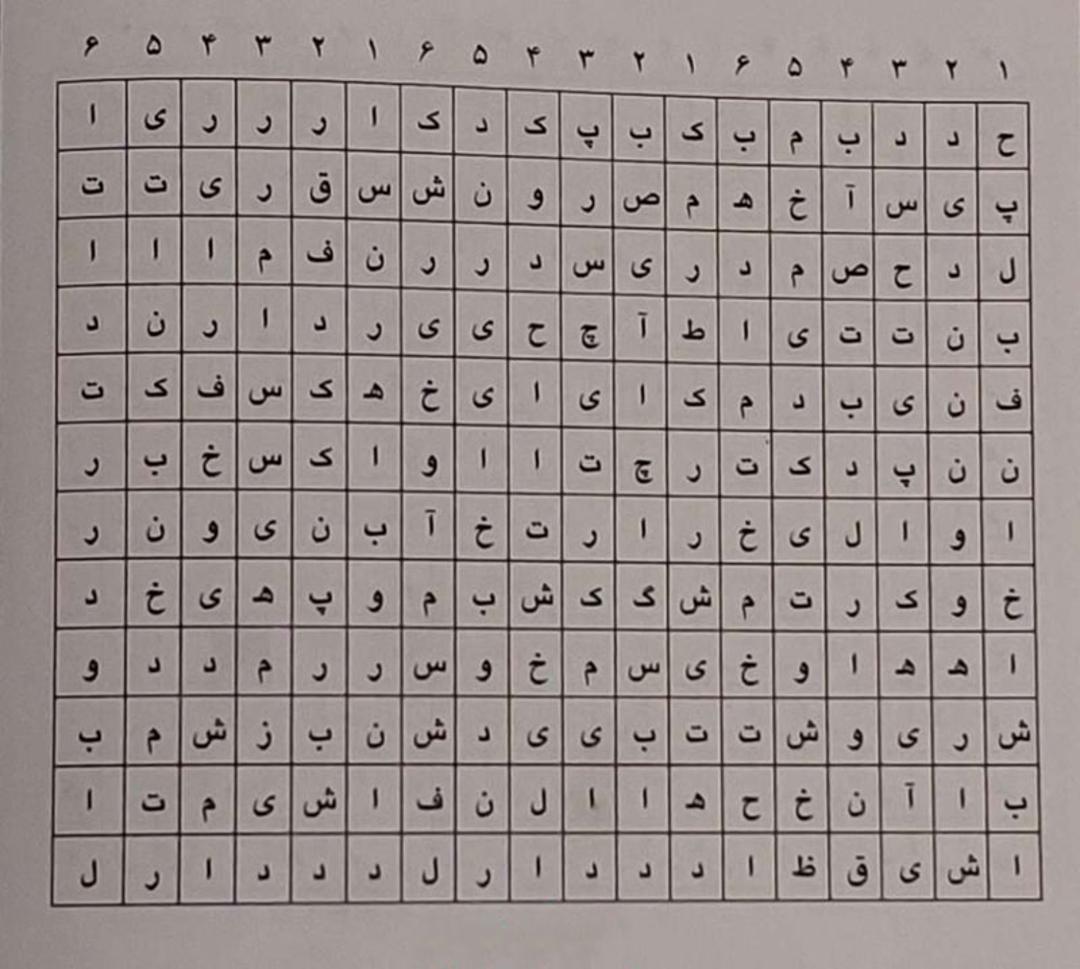 ۱ ۲ ۳ ۴ ۵ ۶ ۱ ۲ ۳ ۴ ۵ ۶ ۱ ۲ ۳ ۴ ۵ ۶
ح د د ب م ب ک ب پ ک د ک ا ر ر ر ی ا
پ ی س آ خ ه م ص ر و ن ش س ق ر ی ت ت
ل د ح ص م د ر ی س د ر ر ن ف م ا ا ا
ب ن ت ت ی ا ط آ چ ح ی ی ر د ا ر ن د
ف ن ی ب د م ک ا ی ا ی خ ه ک س ف ک ت
ن ن پ د ک ت ر چ ت ا ا و ا ک س خ ب ر
ا و ا ل ی خ ر ا ر ت خ آ ب ن ی و ن ر
خ و ک ر ت م ش گ ک ش ب م و پ ه ی خ د
ا ه ه ا و خ ی س م خ و س ر ر م د د و
ش ر ی و ش ت ت ب ی ی د ش ن ب ز ش م ب
ب ا آ ن خ ح ه ا ا ل ن ف ا ش ی م ت ا
ا ش ی ق ظ ا د د د ا ر ل د د د ا ر ل